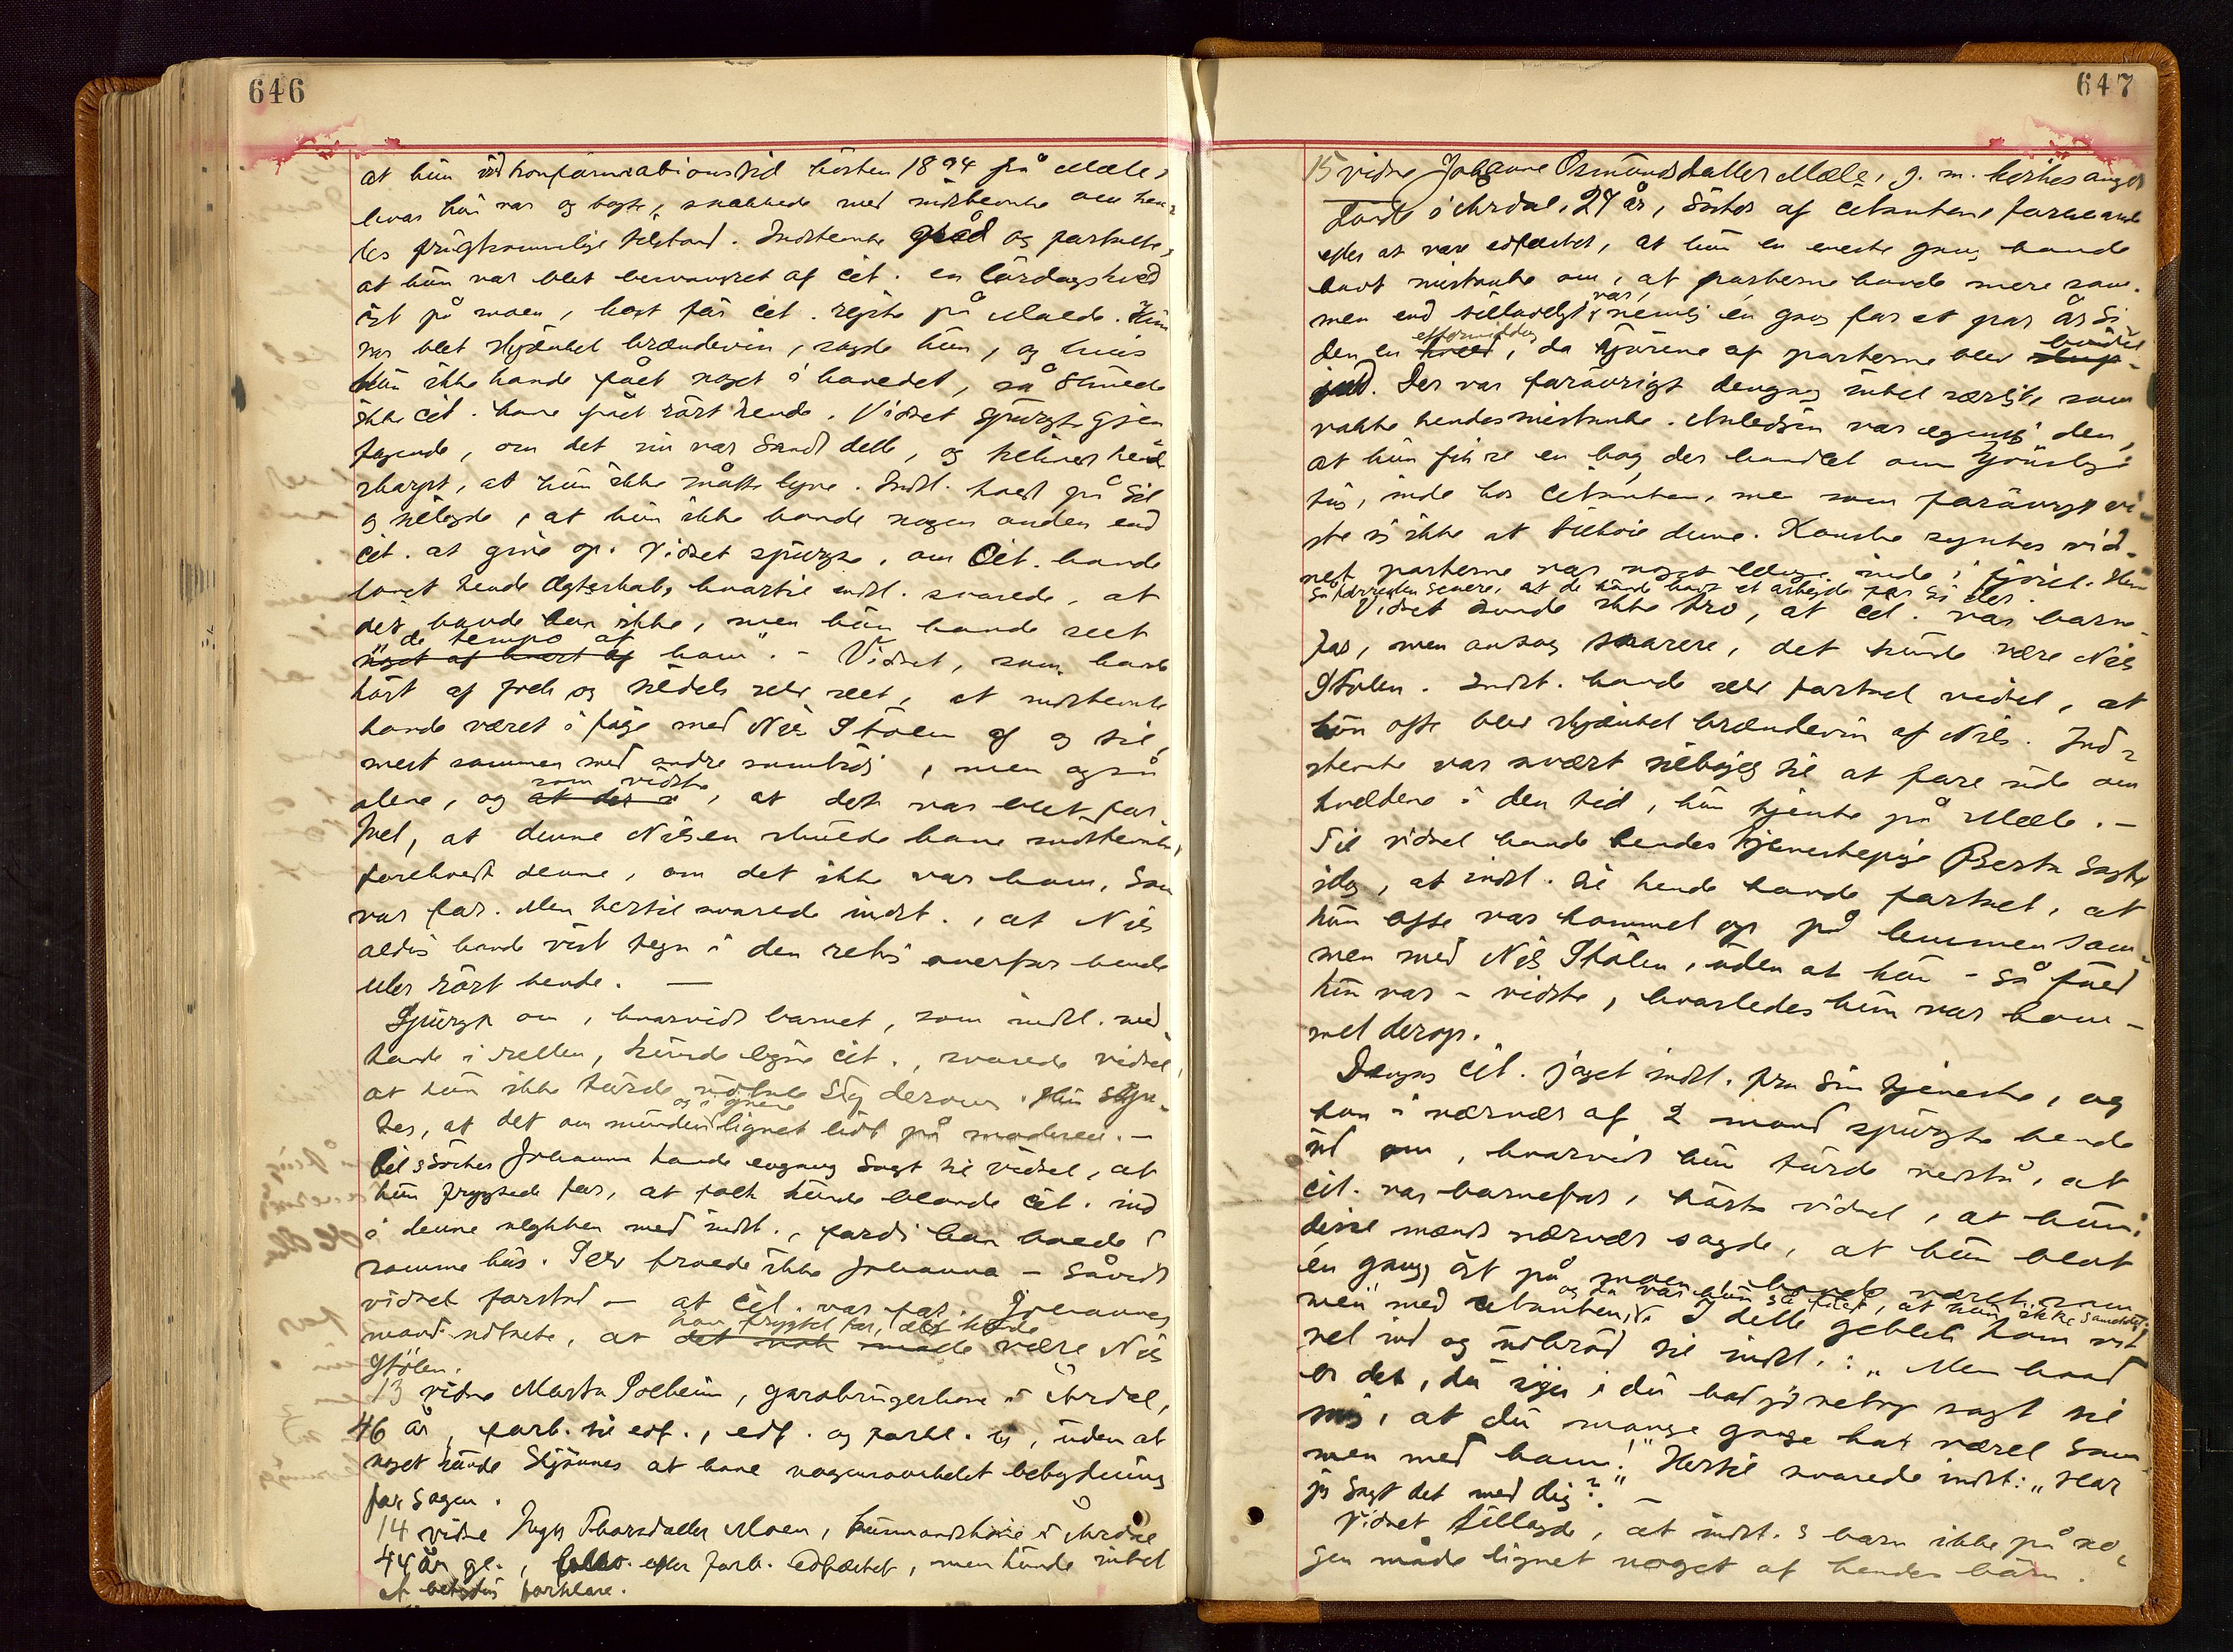 646
at hun ved konfirmationstid hösten 1894 på Mæle,
hvor hun var og bagte, snakkede med indstevnte om hen-
des frugtsommelige tilstand. Indstevnte græd og fortalte,
at hun var blet besvangret af cit. en lördagskvæld
öst på moen, kort för cit. rejste på Molde. Hun
var blet skjænket brændevin, sagde hun, og hvis
hun ikke havde fået noget i hovedet, så skulde
ikke cit. have fået rört hende. Vidnet spurgte gjen
tagende, om det nu var sandt dette, og tilinet hende
skarpt, at hun ikke måtte lyve. Indst. holdt på sit
og tilagde, at hun ikke havde nogen anden end
cit. at give op. Vidnet spurgte, om cit. havde
lovet hende ægteskab, hvortil indst. svarede, at
det havde han ikke, men hun havde seet
"de tempo af
noget af hvert af ham". – Vidnet, som havde
hört af folk og tildels selv seet, at indstevnte
havde været i följe med Nils Stölen af og til,
mest sammen med andre samtidi, men også
som vidste
alene, og at der, at det var blet for
talt, at denne Nilsen skulde have indstevnte,
foreholdt denne, om det ikke var ham, som
var far. Men hertil svarede indst., at Nils
aldri havde vist tegn i den retning overfor hende
eller rört hende. —
Spurgt om, hvorvidt barnet, som indst. med
havde i retten, kunde ligne cit., svarede vidnet,
at hun ikke turde udtale sig derom. Hun syn-
og i öinene
tes, at det om munden lignet lidt på moderen. –
Cit.s söster Johanna havde engang sagt til vidnet, at
hun frygtede for, at folk kunde blande cit. ind
i denne vegkten med indst., fordi han boede i
samme hus. Selv troede ikke Johanna – såvidt
vidnet forstod – at cit. var far. Johannes
han frygtet for, det kunde
mand udtalte, at det nok måde være Nils
Stölen.
13 vidne Marta Solheim, gårdbrugerkone i Årdal,
46 år, forb. til edf., edf. og forkl. sig, uden at
noget kunde skjönnes at have nogensomhelst betydning
for sagen.
14 vidne Inger Thorsdatter Moen, husmandskone i Årdal
44 år gl., efter forb. edfæstet, men kunde intet
af betydn. forklare.
647
15 vidne Johanne Osmundsdatter Mæle, g. m.
Torde i Årdal, 27 år, söster af citanten, forklarede
efter at være edfæstet, at hun en eneste gang havde
havt mistanke om, at parterne havde mere sam-
var,
men end tilladeligt, nemlig én gang for et par år si
eftermiddag
den en kveld, da hjörene af parterne blev
Der var forövrigt dengang intet særligt, som
vakte hendes mistanke. Anledningen var egentlig den,
at hun fik se en bog, der handlet om
inde hos citanten, men som forövrigt vi-
ste si ikke at tilhöre denne. Kanske syntes vid-
net parterne var noget inde i fjöset. Hun
så forresten senere, at de havde havt et arbejde for si der.
Vidnet kunde ikke tro, at cit. var barne-
far, men antog snarere, det kunde være Nils
Stölen. Indst. havde selv fortalt vidnet, at
hun ofte blev skjænket brændevin af Nils. Ind-
stevnte var svært tilböjeg til at fare ude om
kvældene i den tid, hun tjente på Mæle. –
Til vidnet havde hendes tjenestepige Berta sagt
idag, at indst. til hende havde fortalt, at
hun ofte var kommet op på lemmen sam-
men med Nils Stölen, uden at hun – så full
hun var – vidste, hvorledes hun var kom-
met derop.
Dengang cit. jaget indst. fra sin tjeneste, og
han i nærvær af 2 mænd spurgte hende
ud om, hvorvidt hun turde vedstå, at
cit. var barnefar, hörte vidnet, at hun i
disse mænds nærvær sagde, at hun blot
én gang öst på moen havde været sam-
og da var hun så full, at hun ikke sandset.
men med citanten. I dette geblek kom vid-
net ind og udbröd til indst.: "Men hvad
er det, du siger, du har jo netop sagt til
mig, at du mange gange har været sam-
men med ham!" Hertil svarede indst: "Har
jeg sagt det med dig?"
Vidnet tillagde, at indst.s barn ikke på no-
gen måde lignet noget af hendes börn.